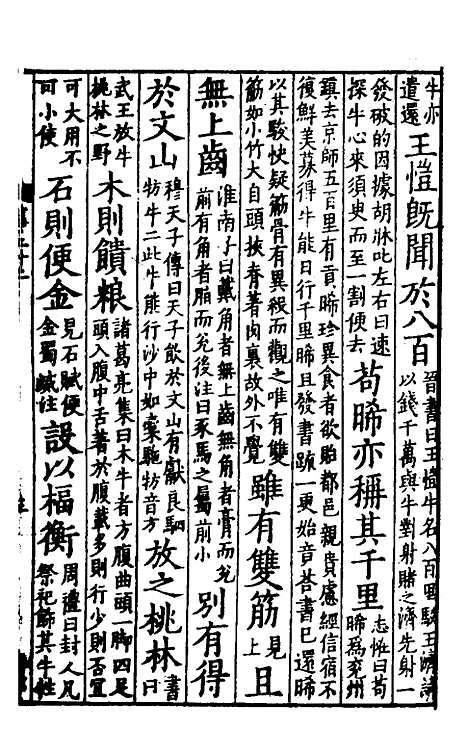 牛亦
遣還
王愷既聞於八百
晉書曰王愷牛名八百里駮王濟請
以錢千萬與牛對射賭之濟先射一
發破的因據胡牀叱左右曰速
探牛心來須臾而至一割便去
苟晞亦稱其千里
志怪曰苟
晞為兗州
鎮去京師五百里有貢晞珍異食者欲貽都邑親貴慮經信宿不
復鮮美募得牛能日行千里晞旦發書疏一更始音荅書已還晞
以其駿快疑筋骨有異殺而觀之唯有雙
筋如小竹大自頭挾脊著肉裏故外不覺
雖有雙筋
見
上
且
無上齒
淮南子曰戴角者無上齒無角者膏而兌
前有角者脂而兌後注曰豕馬之屬前小
別有得
於文山
穆天子傳曰天子飲於文山有獻良駟
牥牛二此牛能行沙中如橐駞牥音方
放之桃林
書
曰
武王放牛
桃林之野
木則饋粮
諸葛亮集曰木牛者方腹曲頭一脚四足
頭入腹中舌著於腹載多則行少則否宜
可大用不
可小使
石則便金
見石賦便
金蜀賦注
設以楅衡
周禮曰封人凡
祭祀飾其牛牲